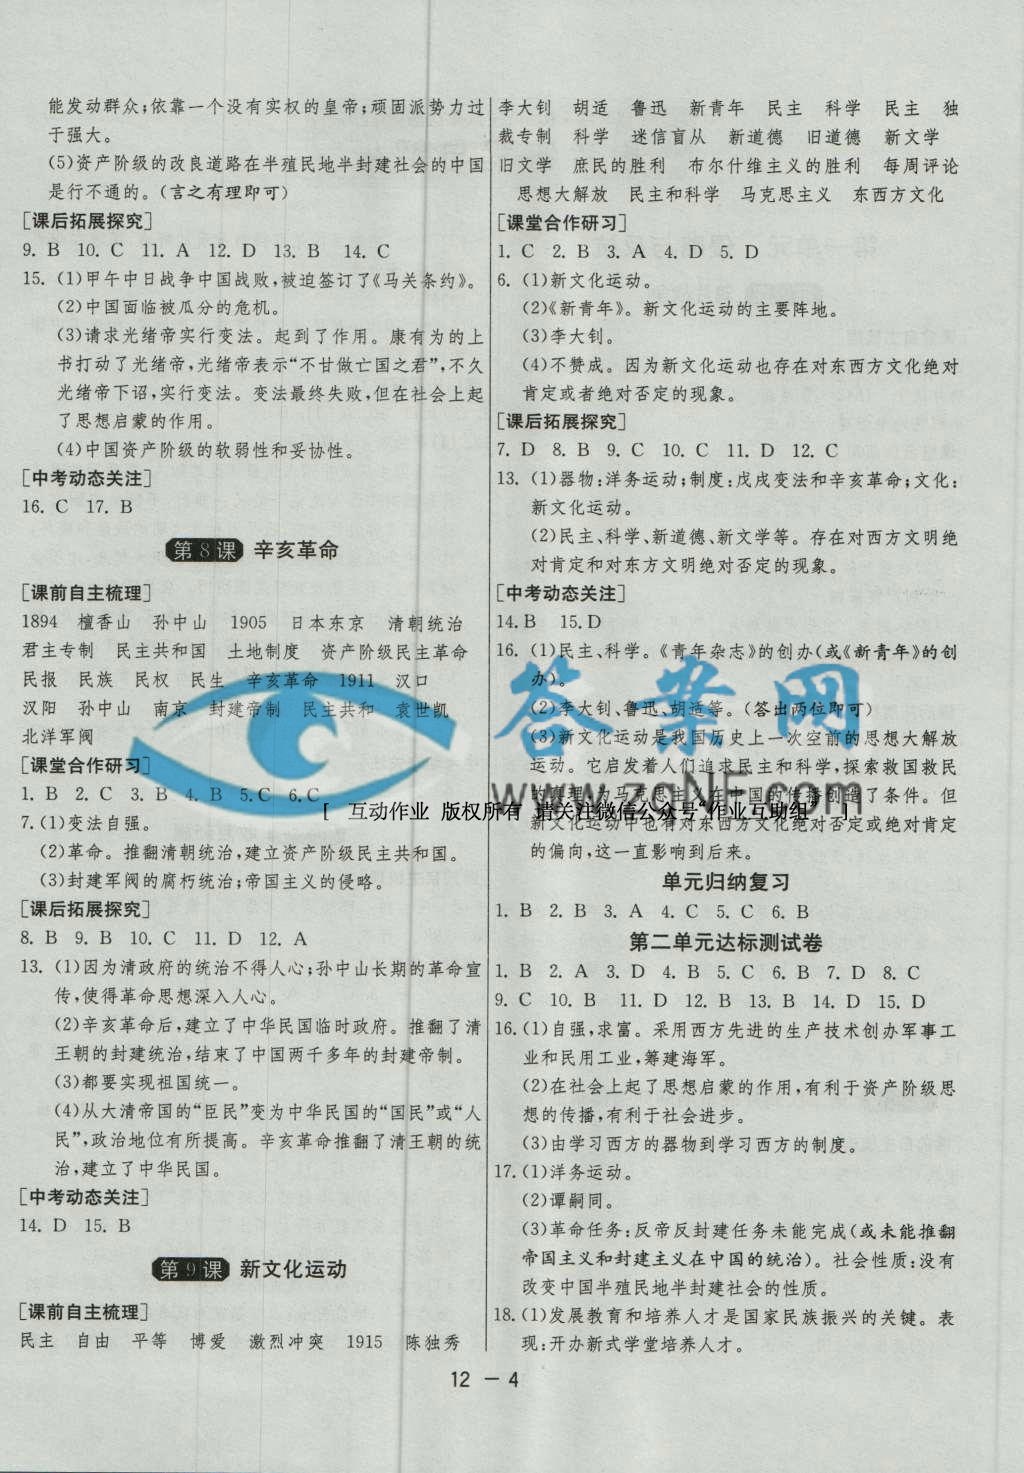 能发动群众;依靠一个没有实权的皇帝;顽固派势力过
于强大。
(5)资产阶级的改良道路在半殖民地半封建社会的中国
是行不通的。(言之有理即可)
[课后拓展探究]
9. B 10. C 11. A 12. D 13. B 14. C
15. (1)甲午中日战争中国战败,被迫签订了《马关条约》。
(2)中国面临被瓜分的危机。
(3)请求光绪帝实行变法。起到了作用。康有为的上
书打动了光绪帝,光绪帝表示“不甘做亡国之君”,不久
光绪帝下诏,实行变法。变法最终失败,但在社会上起
了思想启蒙的作用。
(4)中国资产阶级的软弱性和妥协性。
[中考动态关注]
16. C 17. B
第8课 辛亥革命
[课前自主梳理]
1894 檀香山 孙中山 1905 日本东京 清朝统治
君主专制 民主共和国 土地制度 资产阶级民主革命
民报 民族 民权 民生 辛亥革命 1911 汉口
汉阳 孙中山 南京 封建帝制 民主共和 袁世凯
北洋军阀
[课堂合作研习]
1. B 2. C 3. B 4. B 5. C 6. C
7. (1)变法自强。
(2)革命。推翻清朝统治,建立资产阶级民主共和国。
(3)封建军阀的腐朽统治;帝国主义的侵略。
[课后拓展探究]
8. B 9. B 10. C 11. D 12. A
13. (1)因为清政府的统治不得人心;孙中山长期的革命宣
传,使得革命思想深入人心。
(2)辛亥革命后,建立了中华民国临时政府。推翻了清
王朝的封建统治,结束了中国两千多年的封建帝制。
(3)都要实现祖国统一。
(4)从大清帝国的“臣民”变为中华民国的“国民”或“人
民”,政治地位有所提高。辛亥革命推翻了清王朝的统
治,建立了中华民国。
[中考动态关注]
14. D 15. B
第9课 新文化运动
[课前自主梳理]
民主 自由 平等 博爱 激烈冲突 1915 陈独秀
李大钊 胡适 鲁迅 新青年 民主 科学 民主 独
裁专制 科学 迷信盲从 新道德 旧道德 新文学
旧文学 庶民的胜利 布尔什维主义的胜利 每周评论
思想大解放 民主和科学 马克思主义 东西方文化
[课堂合作研习]
1. C 2. B 3. A 4. D 5. D
6. (1)新文化运动。
(2)《新青年》。新文化运动的主要阵地。
(3)李大钊。
(4)不赞成。因为新文化运动也存在对东西方文化绝对
肯定或者绝对否定的现象。
[课后拓展探究]
7. D 8. B 9. C 10. C 11. D 12. C
13. (1)器物:洋务运动;制度:戊戌变法和辛亥革命;文化:
新文化运动。
(2)民主、科学、新道德、新文学等。存在对西方文明绝
对肯定和对东方文明绝对否定的现象。
[中考动态关注]
14. B 15. D
16. (1)民主、科学。《青年杂志》的创办(或《新青年》的创
办)。
(2)李大钊、鲁迅、胡适等。(答出两位即可)
(3)新文化运动是我国历史上一次空前的思想大解放
运动。它启发着人们追求民主和科学,探索救国救民
的真理,为马克思主义在中国的传播创造了条件。但
新文化运动中也有对东西方文化绝对肯定或绝对否定
的偏向,这一直影响到后来。
单元归纳复习
1. B 2. B 3. A 4. C 5. C 6. B
第二单元达标测试卷
1. B 2. A 3. D 4. B 5. C 6. B 7. D 8. C
9. C 10. B 11. D 12. B 13. D 14. D 15. D
16. (1)自强,求富。采用西方先进的生产技术创办军事工
业和民用工业,筹建海军。
(2)在社会上起了思想启蒙的作用,有利于资产阶级思
想的传播,有利于社会进步。
(3)由学习西方的器物到学习西方的制度。
17. (1)洋务运动。
(2)谭嗣同。
(3)革命任务:反帝反封建任务未能完成(或未能推翻
帝国主义和封建主义在中国的统治)。社会性质:没有
改变中国半殖民地半封建社会的性质。
18. (1)发展教育和培养人才是国家民族振兴的关键。表
现:开办新式学堂培养人才。
12 - 4
答案网
[ 互动作业 版权所有 请关注微信公众号“作业互助组” ]